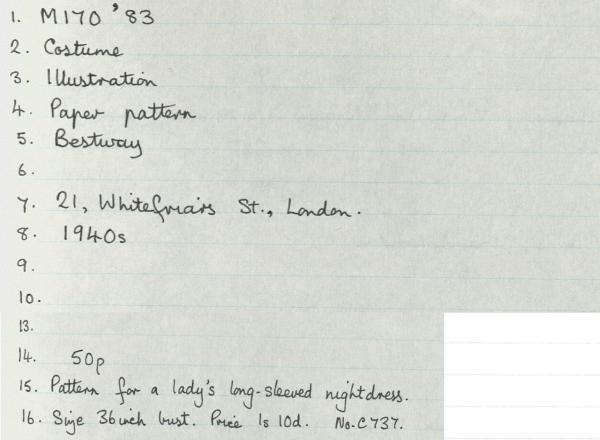 1. M170 '83
2. Costume
3. Illustration
4. Paper pattern
5. Bestway
6.
7. 21, Whitefriars St., London.
8. 1940s
9.
10.
13.
14. 50p
15. Pattern for a lady's long-sleeved nightdress.
16. Size 36 inch bust. Price 1s 10d. No. C737.